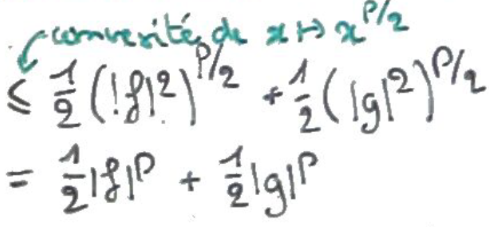 convexité de x ↦ x^{p/2}
≤ 1/2 (|f|²)^{p/2} + 1/2 (|g|²)^{p/2}
= 1/2 |f|^p + 1/2 |g|^p